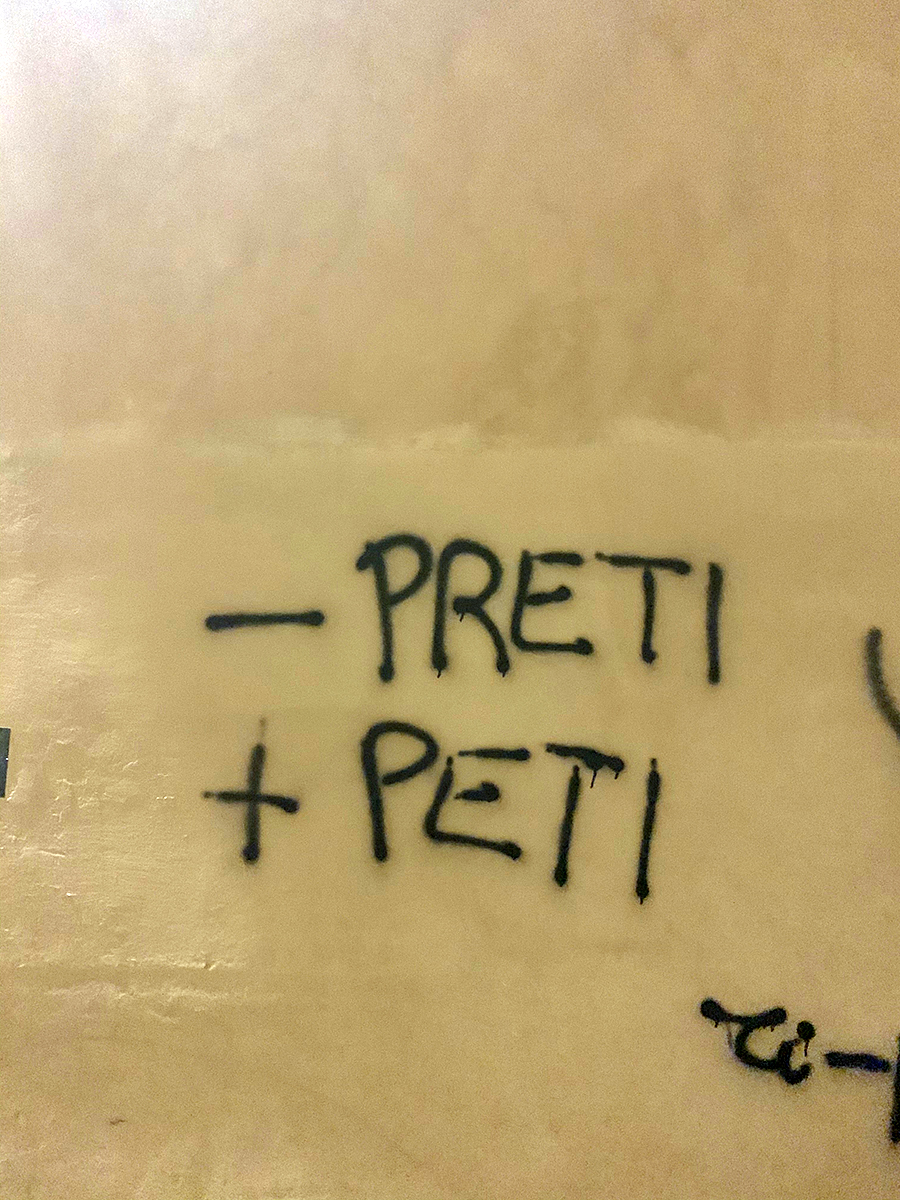 - PRETI
+ PETI